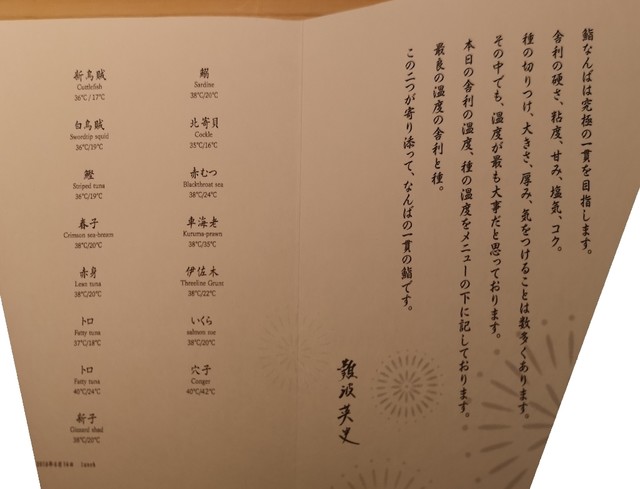 鮨なんばは究極の一貫を目指します。
舎利の硬さ、粘度、甘み、塩気、コク。
種の切りつけ、大きさ、厚み、気をつけることは数多くあります。
その中でも、温度が最も大事だと思っております。
本日の舎利の温度、種の温度をメニューの下に記しております。
最良の温度の舎利と種。
この二つが寄り添って、なんばの一貫の鮨です。
難波英史
新烏賊
Cuttlefish
36℃/17℃
白烏賊
Swordtip squid
36℃/19℃
鰹
Striped tuna
36℃/19℃
春子
Crimson sea-bream
38℃/20℃
赤身
Lean tuna
38℃/20℃
トロ
Fatty tuna
37℃/18℃
トロ
Fatty tuna
40℃/24℃
新子
Gizzard shad
38℃/20℃
鰯
Sardine
38℃/20℃
北寄貝
Cockle
35℃/16℃
赤むつ
Blackthroat sea
38℃/24℃
車海老
Kuruma-prawn
38℃/35℃
伊佐木
Threeline Grunt
38℃/22℃
いくら
salmon roe
38℃/20℃
穴子
Conger
40℃/42℃
Lunch